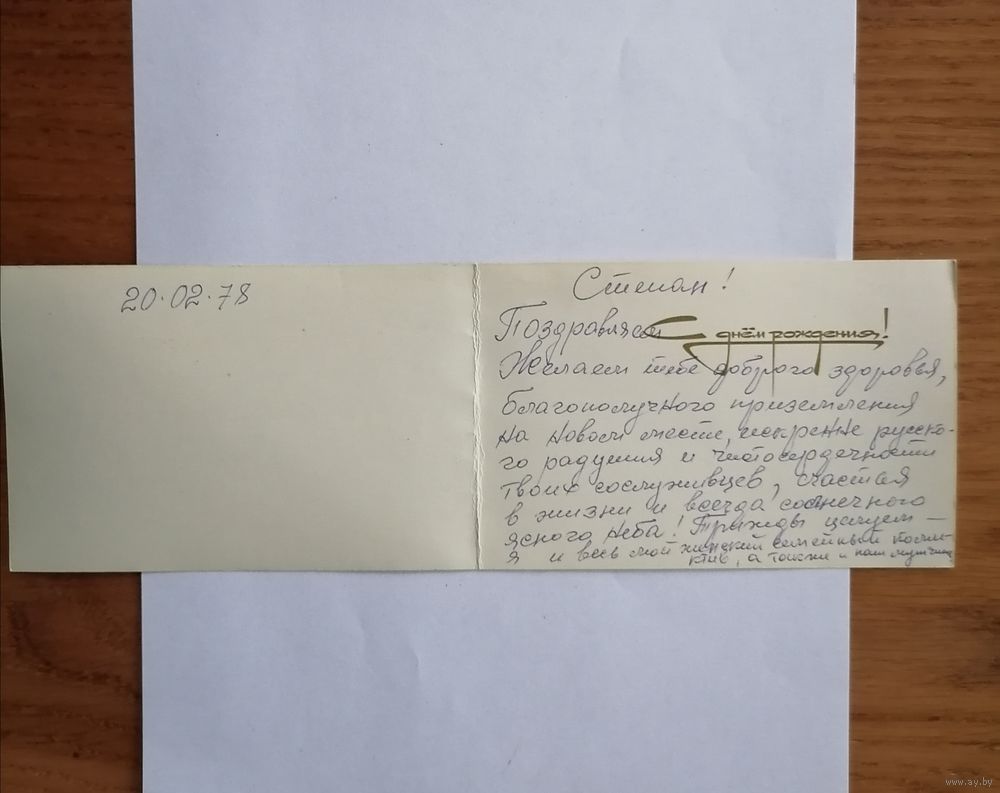 20.02.78
Степан!
Поздравляем С днём рождения!
Желаем тебе доброго здоровья,
благополучного приземления
на новом месте, искренне русско-
го радушия и чистосердечности
твоих сослуживцев, счастья
в жизни и всегда солнечного
ясного неба! Трижды целуем —
я и весь мой женский семейный коллек-
тив, а также и наш мужчина
www.ay.by